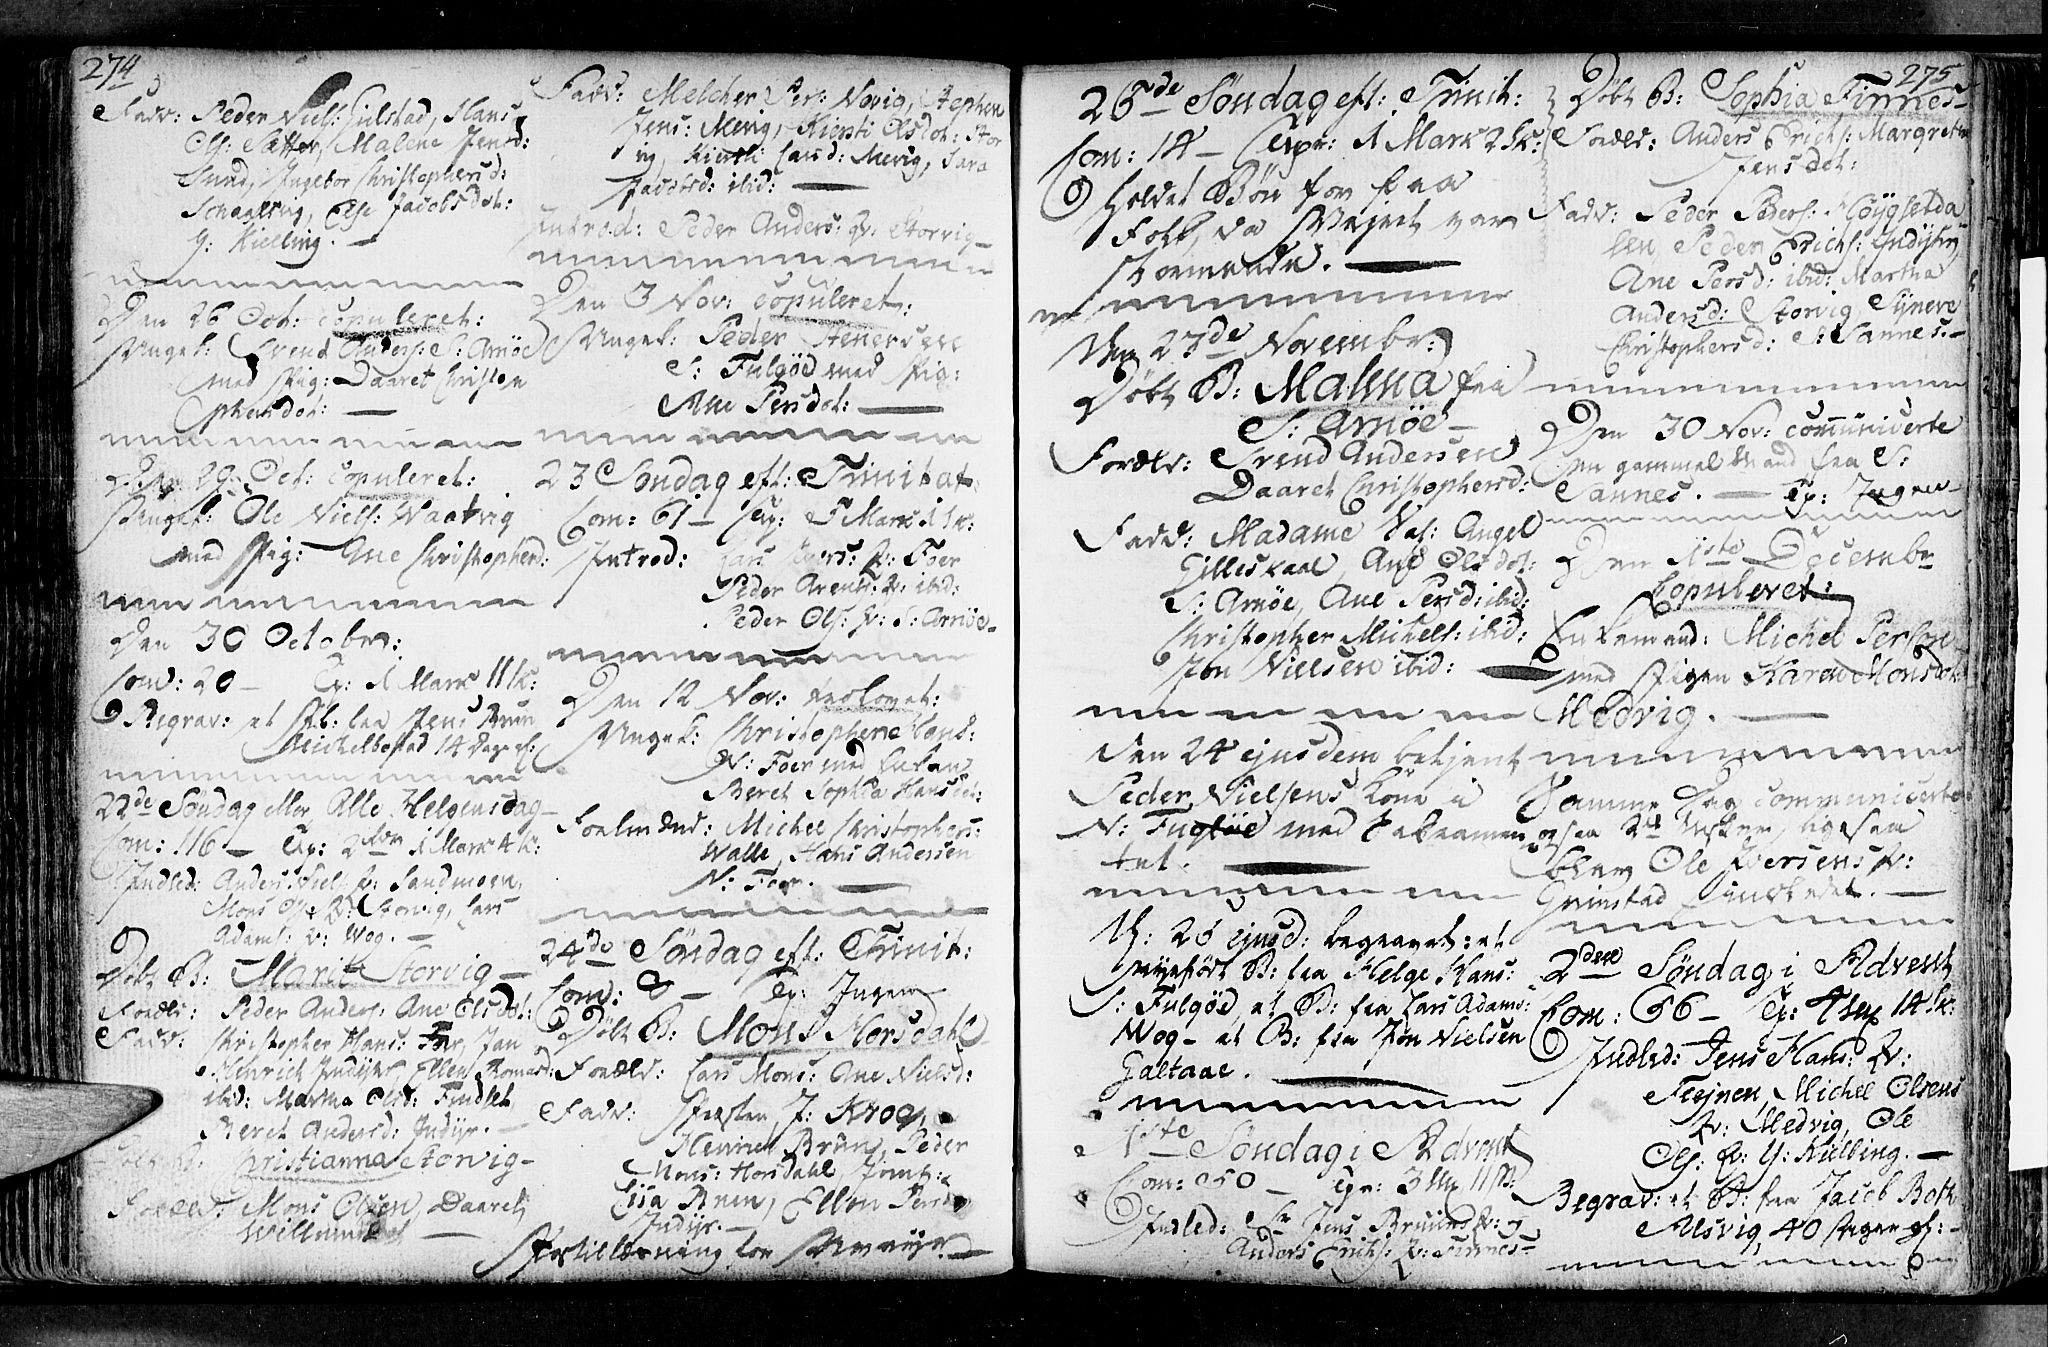 274
Fadd: Peder Niels: Gilstad, Hans
Ols: Sætter, Malene Jensd:
Sund, Ingebor Christophersd:
Schaalsvig, Else Jacobsdot:
Y: Kielling. —
Den 26 Oct: Copuleret:
Ungk: Svend Anders: S: Arnöe
med Pig: Daaret Christo
phersdot: —
Den 29 Oct: Copuleret:
Ungk: Ole Niels: Waatvig
med Pig: Ane Christophersd:
Den 30 Octobr:
Com: 20 — Exp: 1 Mark 11 sk:
Begrav: et B: fra Jens Brun
Michelbostad 14 Dage gl:
22de Söndag eller Alle Helgensdag
Com: 116 — Exp: 2 1 Mark 4 sk:
Indled: Anders Niels: q: Sandmoen,
Mons Ols: q: Storvig, Lars
Adams: q: Wog. —
Döbt B: Marit Storvig —
Foreldr: Peder Anders: Ane Olsdot:
Fadd: Christopher Hans: Foer, Jan
Henrich Indijr, Ellen
ibid: Martha Olsd: Findset,
Beret Andersd: Indijr. —
Döbt B: Christianna Storvig —
Foreldr: Mons Olsen, Daaret
Fadd: Melcher Pers: Novig, Stephen
Jens: Mevig, Kiersti Olsdot: Stor
vig, Kirsti Larsd: Mevig, Sara
Jacobsd: ibid: —
Introd: Peder Anders: q: Storvig —
Den 3 Nov: Copuleret:
Ungk: Peder Stenersen
S: Fulgöe med Pig:
Ane Persdot: —
23 Söndag eft: Trinitat:
Com: 61 — Exp: 5 Mark 1 sk:
Introd: Lars Ivers: q: Foer
Peder Arents: q: ibid:
Peder Ols: q: S: Arnöe —
Den 12 Nov: trolovet:
Ungk: Christopher Hans:
N: Foer med Enken
Beret Sophia Hansdot:
Forlovere: Michel Christophers:
Walle, Hans Andersen
N: Foer. —
24de Söndag eft: Trinit:
Com: 8 — Exp: Ingen
Döbt B: Mons Horsdahl
Foreldr: Lars Mons: Ane Nielsd:
Fadd: J: Krog,
Henrich Brun, Peder
Mons: Horsdahl, Jomf:
Lisa Brun, Ellen Persd:
Indijr. —
275
25de Söndag eft: Trinit:
Com: 14 — Exp: 1 Mark 2 sk:
Holdet Bön for faa
Folk, da Vejret var
stormende. —
Den 23de Novembr:
Döbt B: Malena fra
S: Arnöe —
Foreldr: Svend Andersen
Daaret Christophersd:
Fadd: Madame Sal: Angel
Gilleskaal, Ane Olsdot:
S: Arnöe, Ane Persd: ibid:
Christopher Michels: ibid:
Jon Nielsen ibid: —
Den 24 ejusdem betjent
Peder Nielsens Kone i
N: Fuglöe med Sakramen
tet. —
D: 25 ejusd: begravet: et
B: fra Helge Hans:
S: Fulgöe, et B: fra Lars Adams:
Wog — et B: fra Jon Nielsen
Galtaae. —
1ste Söndag i Advent
Com: 50 — Exp: 3 Mk 11 sk:
Indled: Sr Jens Bruuns q: og
Anders Erichs: q: Finnes —
Döbt B: Sophia Finnes —
Foreldr: Anders Erichs: Margrethe
Jensdot:
Fadd: Peder Peders: Höygsetda
len, Peder Erichs: Indijr,
Ane Persd: ibid: Martha
Andersd: Storvig Synneve
Christophersd: S: Sannes. —
Den 30 Nov: communicerte
en gammel Mand fra S:
Sannes. — Exp: Ingen —
Den 1ste Decembr
Copuleret:
Enkemand: Michel Person
med Pigen Karen Monsdot:
Medvig. —
Samme Dag communicerte
ogsaa 2de Ligesaa
blev Ole Iversens q:
Grimstad indledet. —
2den Söndag i Advent
Com: 66 — Exp: 4 Mk 14 sk:
Indled: Jens Hans: q:
Fleynen, Michel Olsens
q: Medvig, Ole
Ols: q: Y: Kielling. —
Begrav: et B: fra Jacob Both:
Alsvig, 40 Uger gl: —